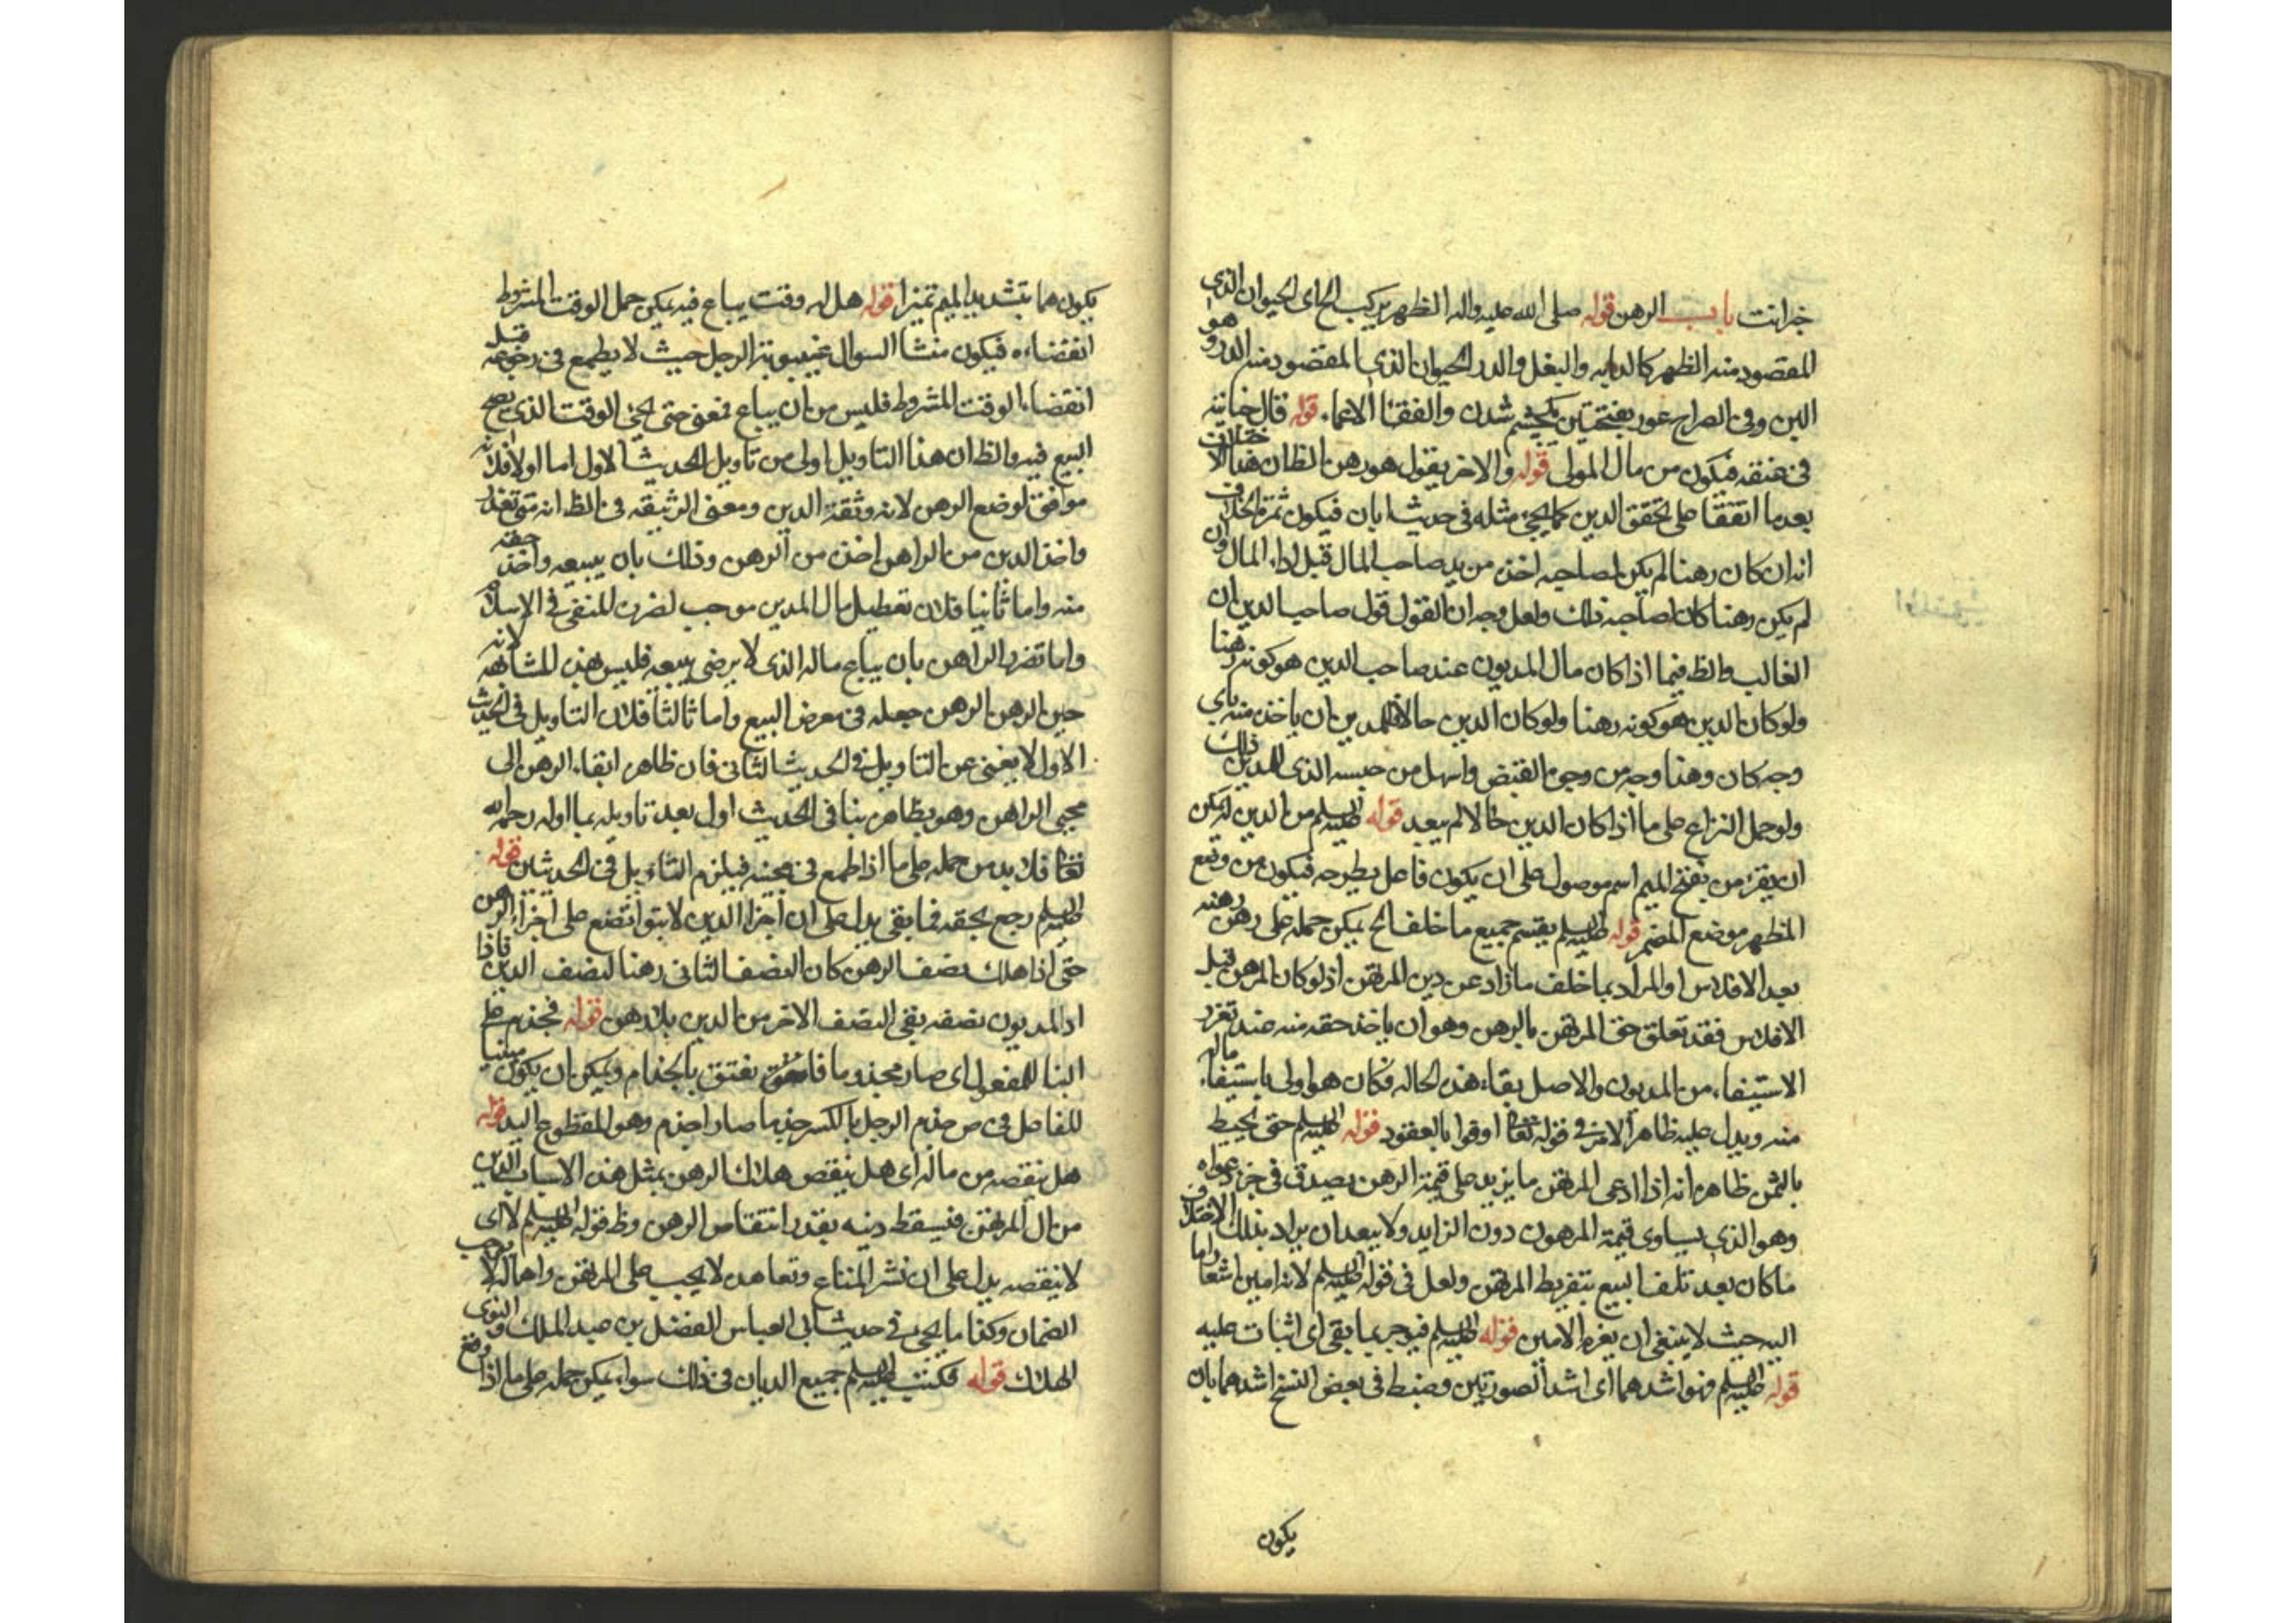 باب الرهن قوله صلى الله عليه واله الظهر يركب الخ اى الحيوان الذى
المقصود منه الظهر كالدابه والبغل والدر الحيوان الذى المقصود منه الدر و هو
اللبن وفى الصراح عور بفتحتين يكچشم شدن والفقأ الاعماء قوله قال جنايته
فى عنقه فيكون من مال المولى قوله والاخر يقول هو رهن الظ ان هذا الاختلاف
بعد ما اتفقا على تحقق الدين كما يجئ مثله فى حديث ابان فيكون ثمرة الخلاف
انه ان كان رهنا لم يكن لصاحبه اخذه من يد صاحب المال قبل اداء المال وان
لم يكن رهنا كان لصاحبه ذلك ولعل وجه ان القول قول صاحب الدين ان
الغالب والظ فيما اذا كان مال المديون عند صاحب الدين هو كونه رهنا
ولو كان الدين هو كونه رهنا ولو كان الدين حالا فللمدين ان ياخذ منه باى
وجه كان وهذا وجه من وجوه القبض واسهل من حبسه الذى للمدين ذلك
ولو حمل النزاع على ما اذا كان الدين حالا لم يبعد قوله عليه السلم من الدين
ان يقرء من بفتح الميم اسم موصول على ان يكون فاعل يطرحه فيكون من وضع
المظهر موضع المضمر قوله عليه السلم يقسم جميع ما خلف الخ يمكن حمله على رهن رهنه
بعد الافلاس او المراد بما خلف ما زاد عن دين المرتهن اذ لو كان الرهن قبل
الافلاس فقد تعلق حق المرتهن بالرهن وهو ان ياخذ حقه منه عند تعذر
الاستيفاء من المديون والاصل بقاء هذه الحاله فكان هو اولى باستيفاء ماله
منه ويدل عليه ظاهر الامر فى قوله تعالى اوفوا بالعقود قوله عليه السلم حتى يحيط
بالثمن ظاهره انه اذا ادعى المرتهن ما يزيد على قيمة الرهن يصدق فى جزء دعواه
وهو الذى يساوى قيمة المرهون دون الزايد ولا يبعد ان يراد بذلك الاختلاف
ما كان بعد تلف المبيع بتفريط المرتهن ولعل فى قوله عليه السلم لانه امين اشعارا ما
اليه حيث لا ينبغى ان يغرم الامين قوله عليه السلم فيوجر بما بقى اى اثبات عليه
قوله عليه السلم فهو اشدهما اى اشد الصورتين وضبط فى بعض النسخ اشدهما بان
يكون
يكون هما بتشديد الميم تميزا قوله هل له وقت يباع فيه يمكن حمل الوقت المشروط
انقضاءه فيكون منشا السوال غيبوبة الرجل حيث لا يطمع فى رجوعه قبل
انقضاء الوقت المشروط فليس من ان يباع فمعنى حتى يجئ الوقت الذى يصح
البيع فيه والظ ان هذا التاويل اولى من تاويل الحديث الاول اما اولا فلانه
موافق لوضع الرهن لانه وثيقة الدين ومعنى الوثيقه فى الظ انه متى تعذر
واخذ الدين من الراهن اخذ من الرهن وذلك بان يبيعه واخذ حقه
منه واما ثانيا فلان تعطيل مال المدين موجب لضرر المنفى فى الاسلام
واما تضرر الراهن بان يباع ماله الذى لا يرضى ببيعه فليس بهذه المشابهه لانه
حين الرهن الرهن جعله فى معرض البيع واما ثالثا فلان التاويل فى الحديث
الاول لا يغنى عن التاويل فى الحديث الثانى فان ظاهره ابقاء الرهن الى
مجيئ الراهن وهو بظاهره ينافى الحديث اول بعد تاويله بما اوله رحمه الله
تعالى فلا بد من حمله على ما اذا طمع فى مجيئه فيلزم التاويل فى الحديثين قوله
عليه السلم رجع بحقه فيما بقى يدل على ان اجزاء الدين لا يتوزع على اجزاء الرهن
حتى اذا هلك نصف الرهن كان النصف الثانى رهنا لنصف الدين فاذا
ادا المديون نصفه بقى النصف الاخر من الدين بلا رهن قوله فجذم على
البنا للمفعول اى صار مجذوما فانعتق بالجذام ويمكن ان يكون مبنيا
للفاعل فى ص جذم الرجل بالكسر جذما صار اجذم وهو المقطوع اليد قوله
هل ينقصه من ماله اى هل ينقص هلاك الرهن بمثل هذه الاسباب الدين
من مال المرتهن فيسقط دينه بقدر انتقاص الرهن وظ قوله عليه السلم لا اى
لا ينقصه يدل على ان نشر المتاع وتعاهده لا يجب على المرتهن واهماله لا يوجب
الضمان وكذا ما يجئ فى حديث ابى العباس الفضل بن عبد الملك
الهلاك قوله فكتب عليه السلم جميع الديان فى ذلك سواء يمكن حمله على ما اذا وقع